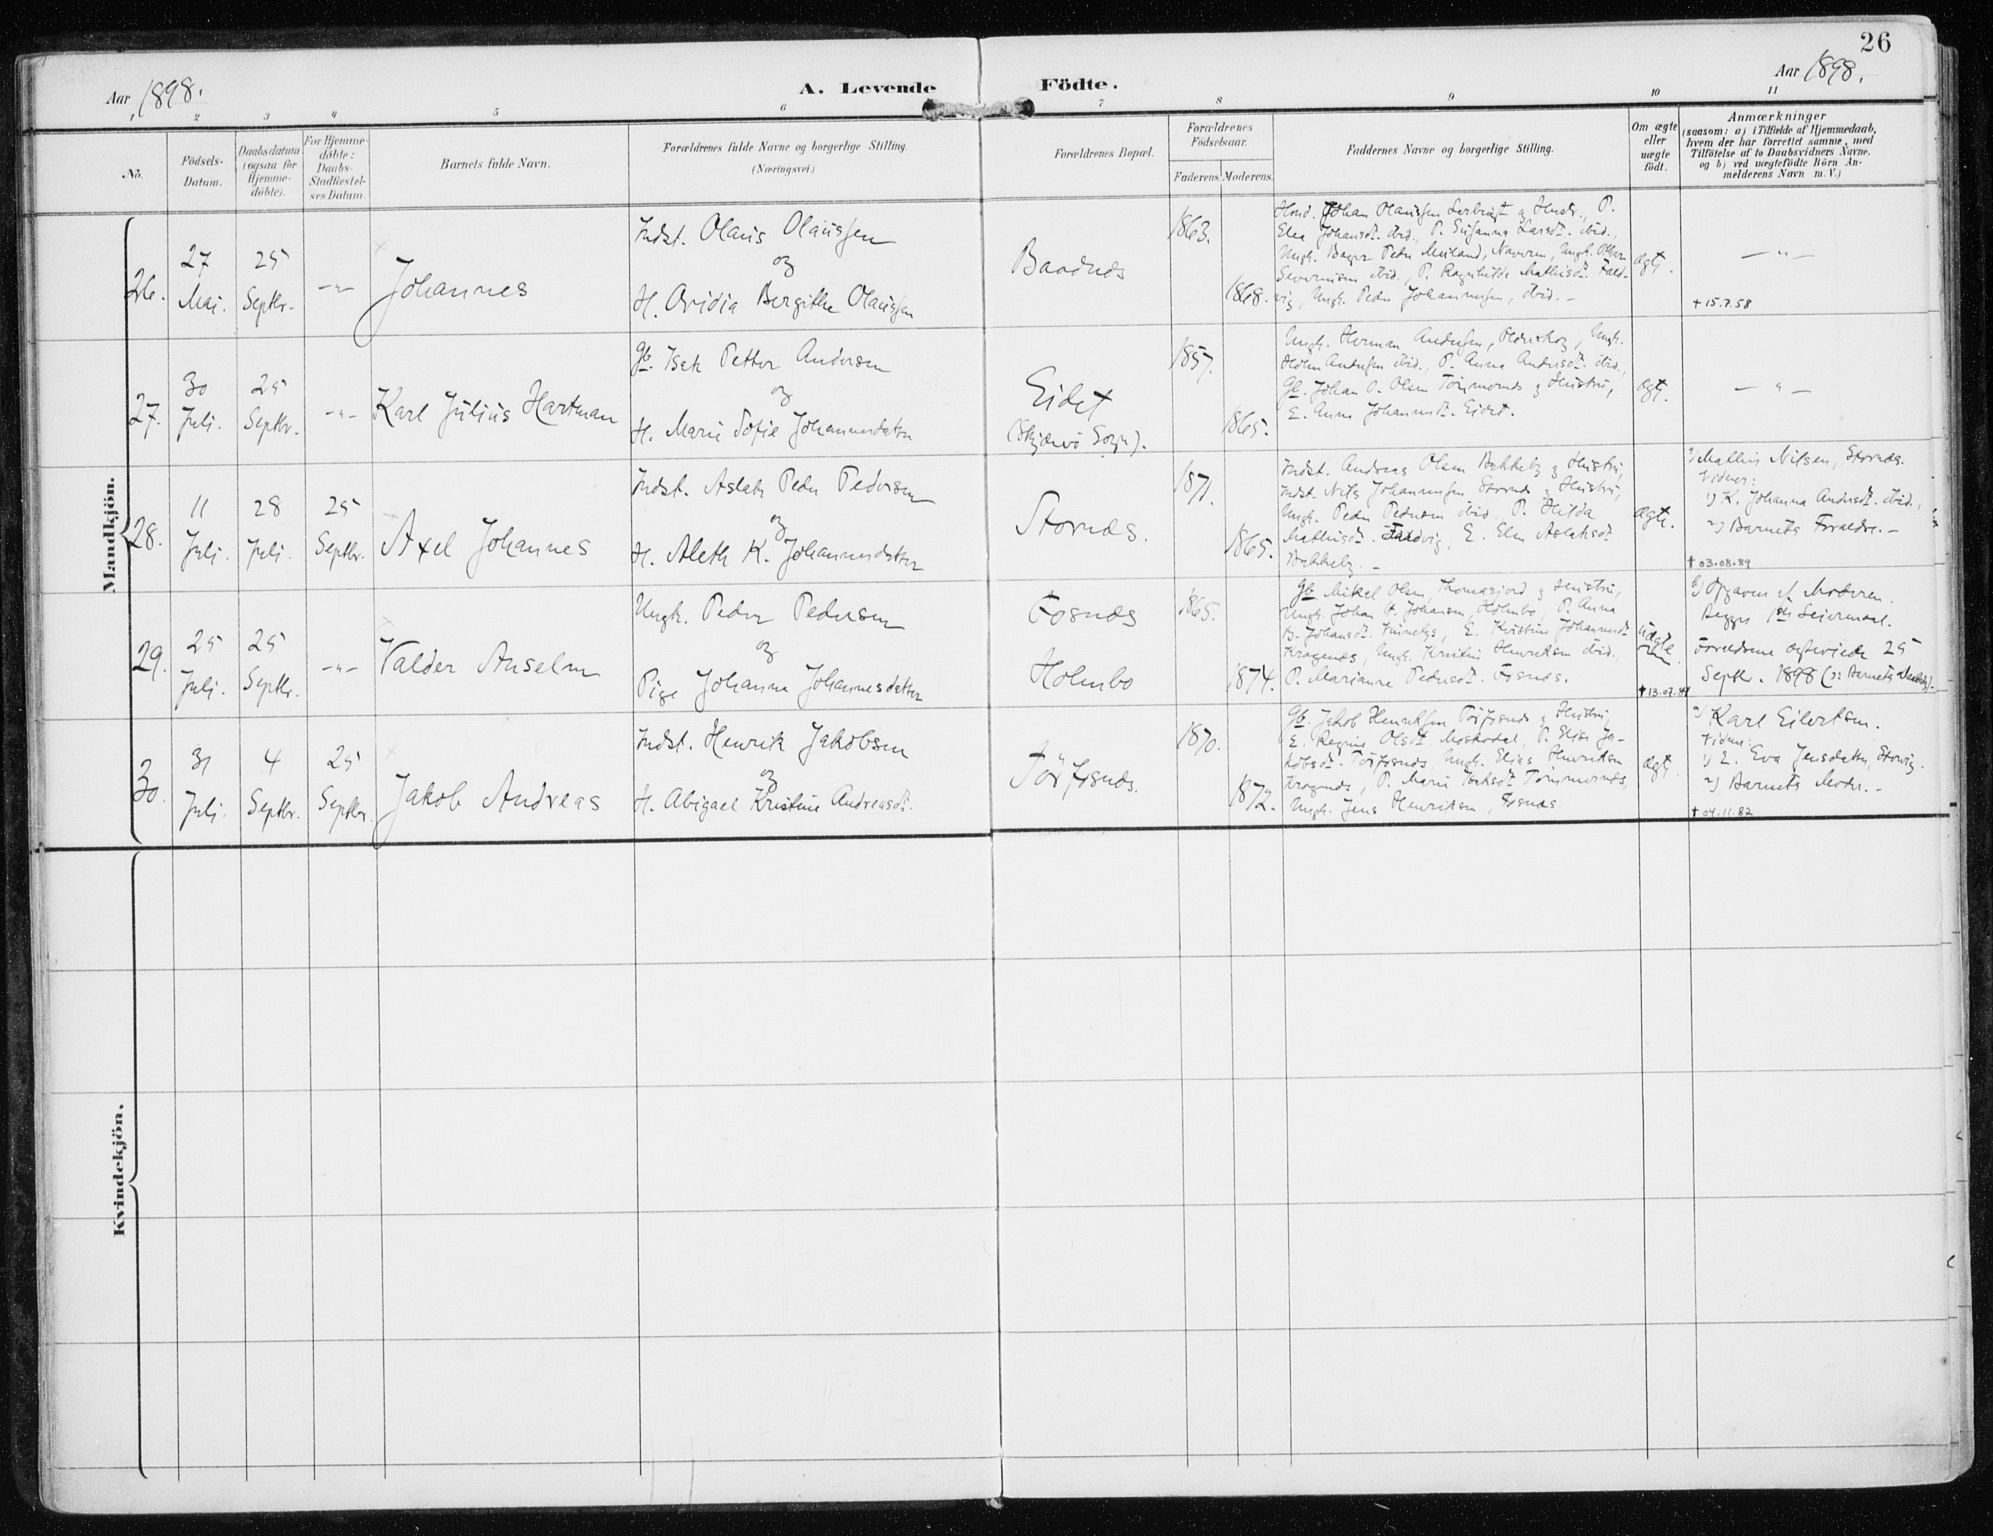 26
Aar 1898.
A. Levende Födte.
Aar 1898.
1 2 3 4 5 6 7 8 9 10 11
No.
Födsels-
Datum.
Daabsdatum
(ogsaa for
Hjemme-
döbte).
For Hjemme-
döbte:
Daabs-
Stadfæstel-
ses Datum.
Barnets fulde Navn.
Forældrenes fulde Navne og borgerlige Stilling.
(Næringsvei.)
Forældrenes Bopæl.
Forældrenes
Födselsaar.
Faderens. Moderens.
Faddernes Navne og borgerlige Stilling.
Om ægte
eller
uægte
födt.
Anmærkninger
(saasom: a) i Tilfælde af Hjemmedaab,
hvem der har forrettet samme, med
Tilföielse af to Daabsvidners Navne.
og b) ved uægtefödte Börn An-
melderens Navn m. V.)
Mandkjön.
26.
27
Mai.
25
Septbr.
-"-
Johannes
Indst. Olaus Olaussen
og
H. Ovidia Bergithe Olaussen
Baadnæs
1863.
1868.
Johan Olaussen
Elea Johansdt. ibid., P. Susanna Larsdt. ibid.,
Severinsen ibid., P. Ragnhilde Mathisdt.
Ungk. Peder Johannessen, ibid. -
ægt.
- " -
+ 15.7.58
27.
30
Juli.
25
Septbr.
-"-
Karl Julius Hartman
Gb. Isak Petter Andersen
og
H. Marie Sofie Johannesdatter
Eidet
(Skjærvö Sogn).
1857.
1865.
Ungk. Herman Andersen, Ungk.
Andersen ibid., P. Anna Andersdt. ibid.,
Gb. Johan O. Olsen Töimernæs & Hustru,
E. Anna Johannesdt. Eidet.
ægt.
- " -
28.
11
Juli.
28
Juli.
25
Septbr.
Axel Johannes
Indst. Aslak Peder Pedersen
og
H. Aleth K. Johannesdatter
Stornæs.
1871.
1865.
Indst. Andreas Olsen Bakkeby & Hustru,
Indst. Nils Johannessen Stornæs & Hustru,
Ungk. Peder Pedersen ibid., P. Hilda
Mathisdt. E. Elen Aslaksdt.
Bakkeby. -
ægte.
Mathis Nilsen, Stornæs.
Vidner:
1) K. Johanna Andersdt. ibid.,
2) Barnets Forældre. -
† 03.08.89
29.
25
Juli.
25
Septbr.
-"-
Valder Anselm
Ungk. Peder Pedersen
og
Pige Johanna Johannesdatter
Fosnæs
Holmbo
1865.
1874.
Gb. Mikal Olsen, & Hustru,
Ungk. Johan Johansen, Holmbo, P. Anna
B. Johansdt. E. Kristine Johannesdt.
Kragenæs, Ungk. Kristen Henriksen ibid.,
P. Marianne Pedersdt. Fosnæs.
uægte
+ 13.07.
b) Opgaven af Moderen.
Begges 1ste Leiermaal.
Forældrene 25
Septbr. 1898 (o: Barnets Daabsdag).
30.
31
Juli.
4
Septbr.
25
Septbr.
Jakob Andreas
Indst. Henrik Jakobsen
og
H. Abigael Kristine Andreasdt.
1870.
1872.
Gb. Jakob Henriksen & Hustru,
E. Regine Olsdt. Moskodal, P. Elise Ja-
kobsdt. Ungk. Elias Henriksen
Kragenæs, P. Marie Isaksdt. Töimernæs,
Ungk. Jens Henriksen, Fosnæs.
ægt.
a) Karl Eilertsen.
Vidner:
1) E. Eva Jensdatter, Storvig.
2) Barnets Moder. -
† 04.11.82
Kvindekjön.